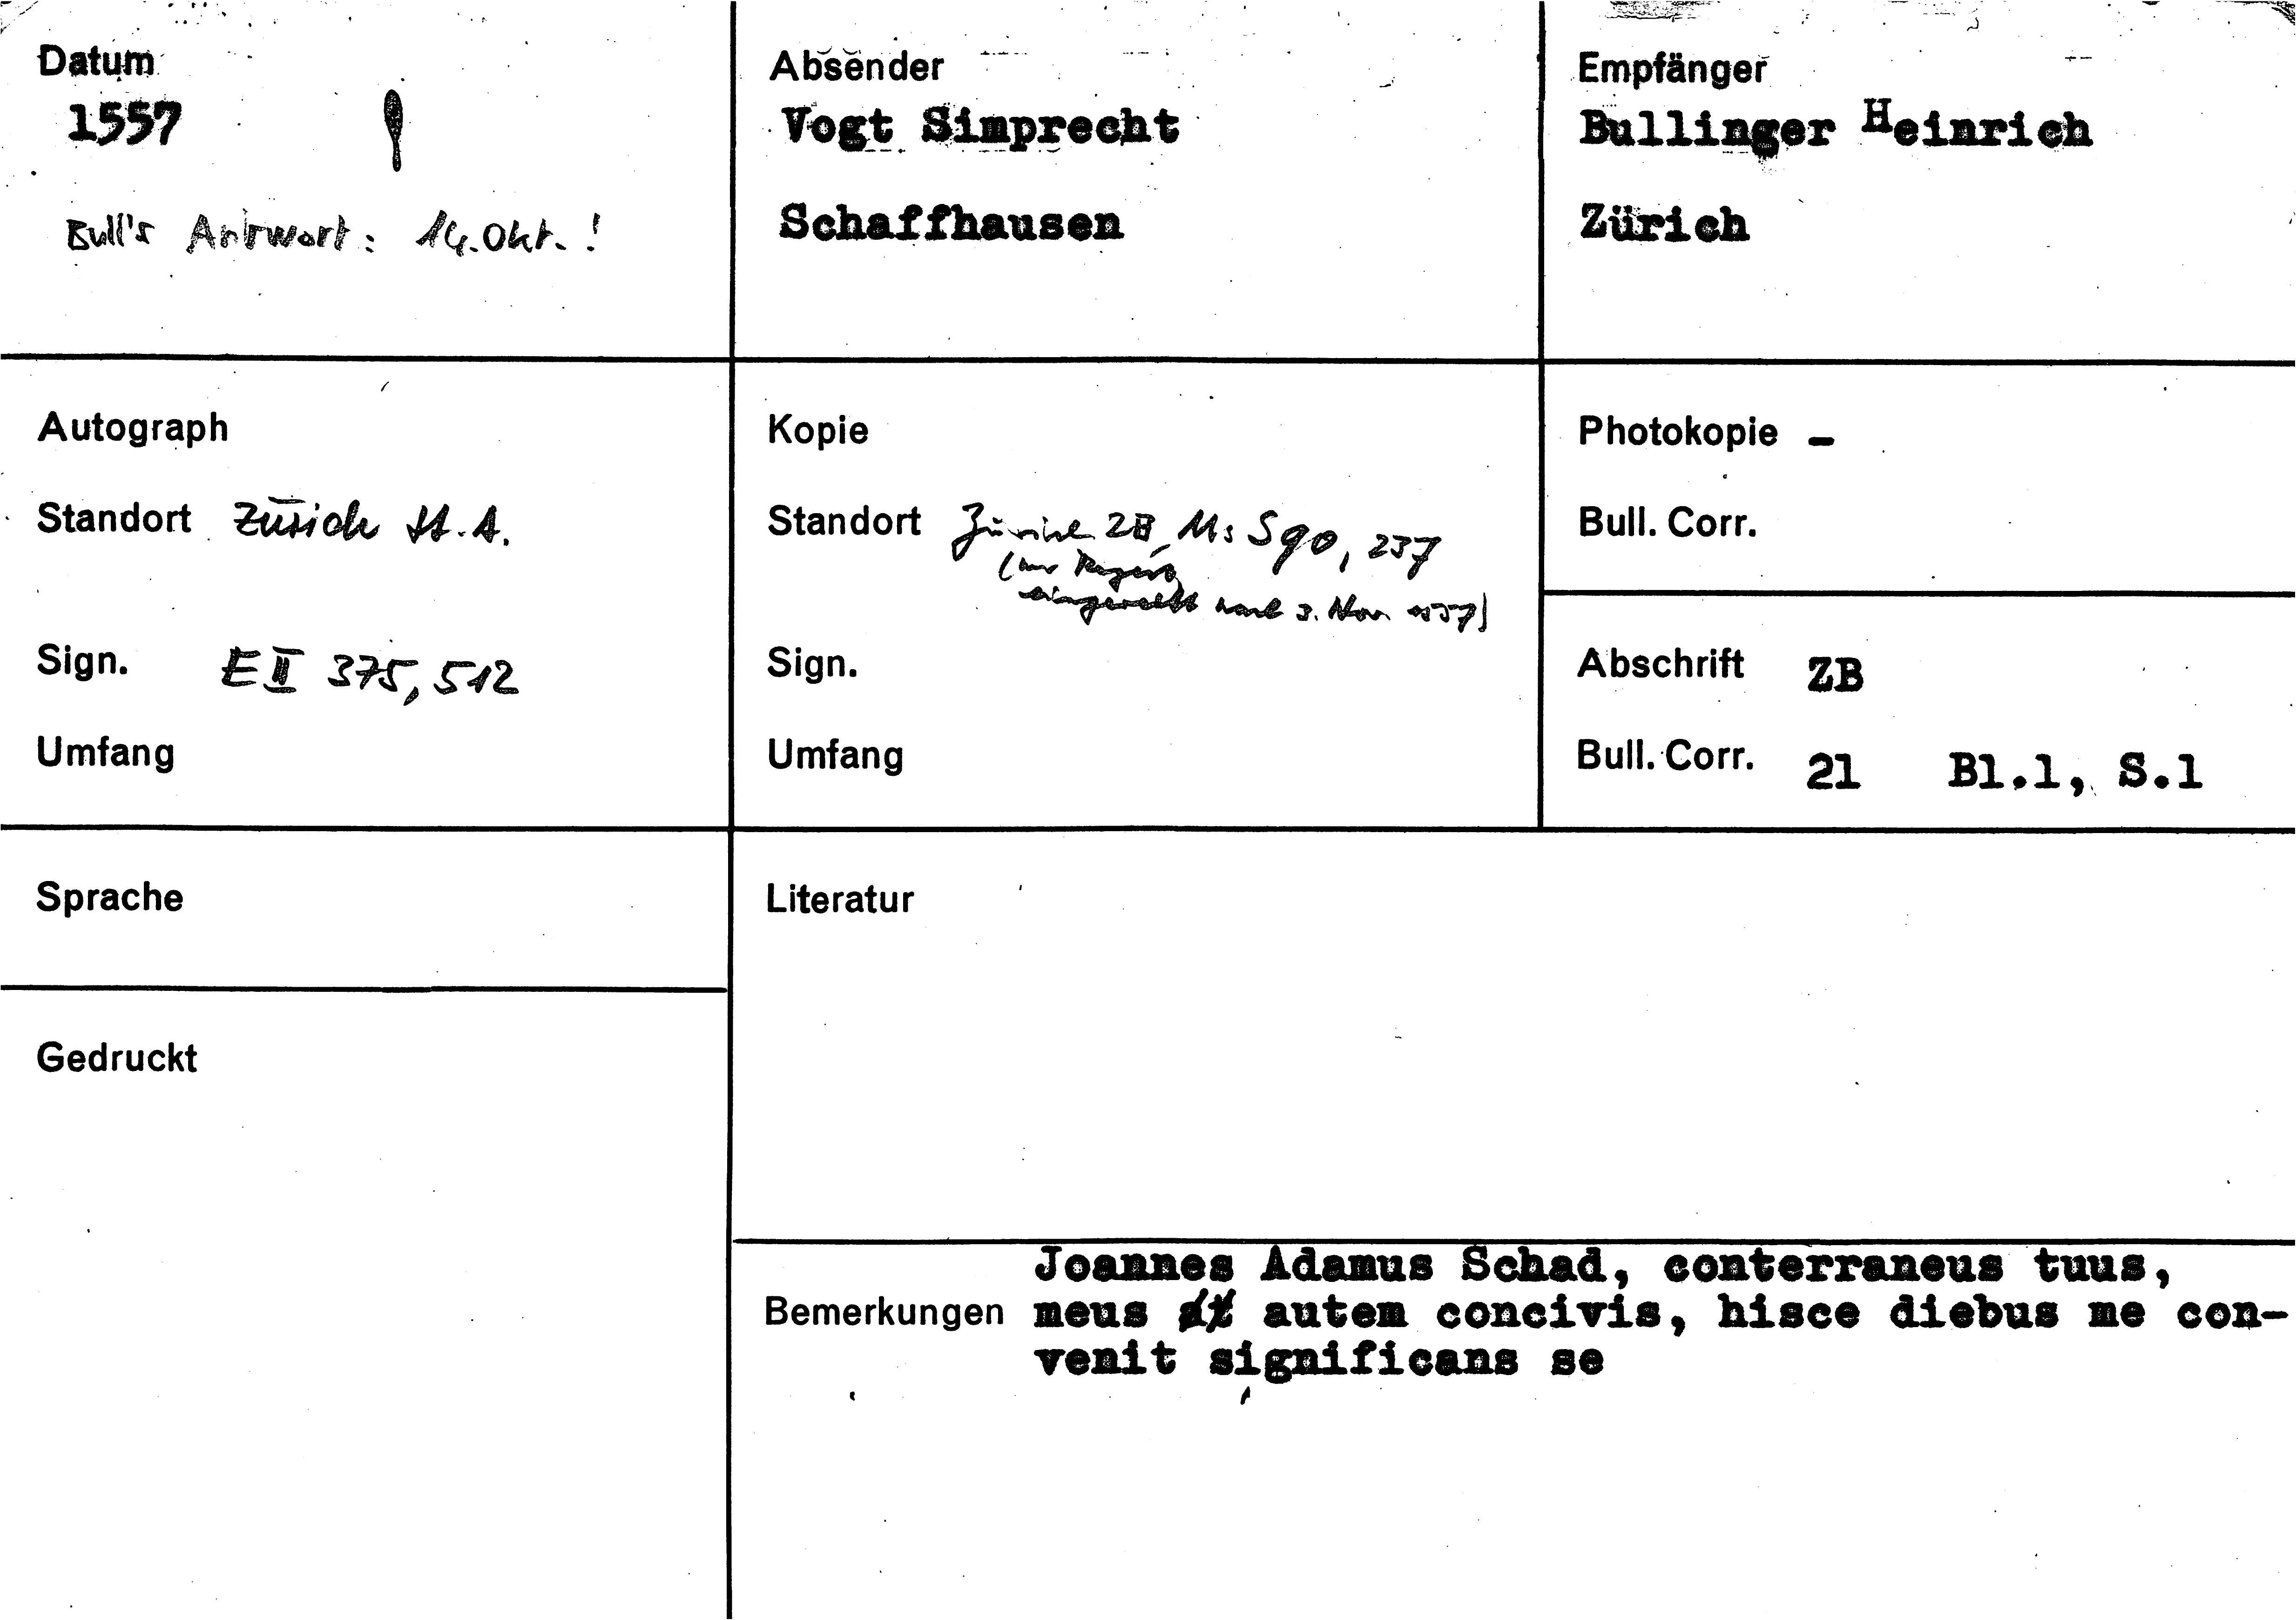 Datum
1557
Bull's Antwort: 14. Okt. !
Absender
Vogt Simprecht
Schaffhausen
Empfänger
Bullinger Heinrich
Zürich
Autograph
Standort Zürich St. A.
Sign. E II 375, 512
Umfang
Kopie
Standort Zürich ZB, Ms S 90, 237
(nur Regest,
eingereiht nach 3. Nov. 1557)
Sign.
Umfang
Photokopie -
Bull. Corr.
Abschrift ZB
Bull. Corr. 21 Bl.1, S.1
Sprache
Gedruckt
Literatur
Bemerkungen
Joannes Adamus Schad, conterraneus tuus,
meus autem concivis, hisce diebus me con-
venit significans se